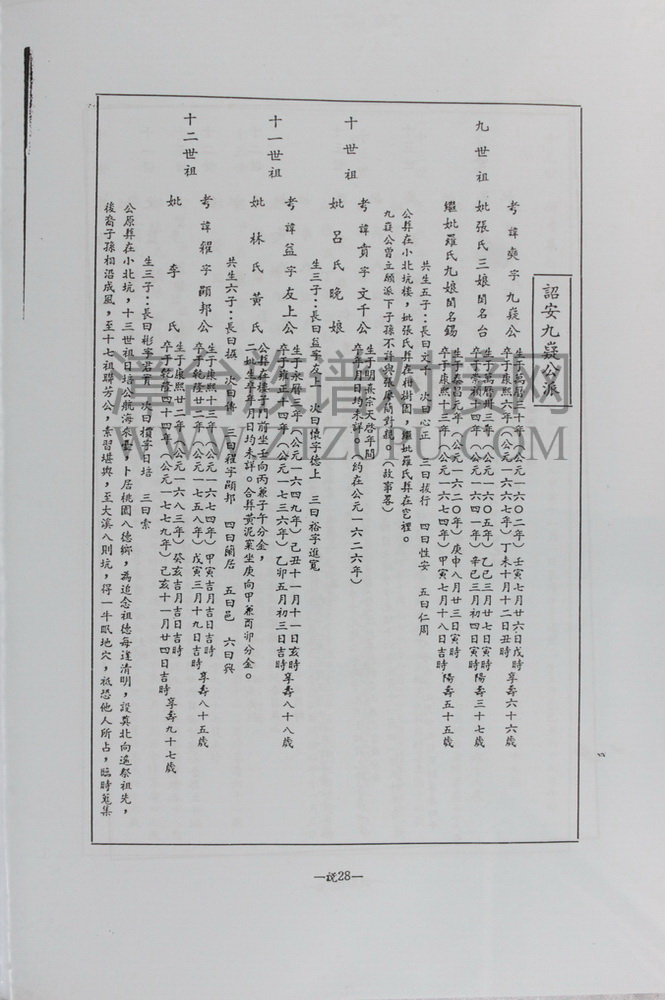 詔安九嶷公派
九世祖
考諱奭字九嶷公
生于萬曆三十年(公元一六〇二年)壬寅七月廿六日戌時
卒于康熙六年(公元一六六七年)丁未十月十二日丑時 享壽六十六歲
妣張氏三娘閨名台
生于萬曆卅三年(公元一六〇五年)乙巳三月廿七日寅時
卒于崇禎十四年(公元一六四一年)辛巳三月初四日寅時 陽壽三十七歲
繼妣羅氏九娘閨名錫
生于泰昌元年(公元一六二〇年)庚申八月廿三日寅時
卒于康熙十三年(公元一六七四年)甲寅七月十八日吉時 陽壽五十五歲
共生五子:長曰文千 次曰心正 三曰拔行 四曰性安 五曰仁周
公葬在小北坑樓,妣張氏葬在柑樹園,繼妣羅氏葬在它裡。
九嶷公曾立願派下子孫不許與張廖簡對親。(故事畧)
十世祖
考諱賁字文千公
生于明熹宗天啓年間(約在公元一六二六年)
卒年月日均未詳。
妣呂氏晚娘
生三子:長曰益字友上 次曰懷字德上 三曰裕字進寬
十一世祖
考諱益字友上公
生于永曆三年(公元一六四九年)己丑十一月十一日亥時
卒于雍正十四年(公元一七三六年)乙卯五月初三日吉時 享壽八十八歲
公葬在樓子門前坐壬向丙兼子午分金,
妣林氏黃氏
二妣生卒年月日均未詳。合葬黃泥窠坐庚向甲兼酉卯分金。
共生六子:長曰損 次曰傳 三曰穟字顯邦 四曰蘭居 五曰邑 六曰與
十二世祖
考諱穟字顯邦公
生于康熙十三年(公元一六七四年)甲寅吉月吉日吉時
卒于乾隆廿二年(公元一七五八年)戊寅三月十九日吉時 享壽八十五歲
妣李氏
生于康熙廿二年(公元一六八三年)癸亥吉月吉日吉時
卒于乾隆四十四年(公元一七七九年)己亥十一月廿四日吉時 享壽九十七歲
生三子:長曰彬字君實 次曰檟字日培 三曰索
公原葬在小北坑,十三世祖日培公航海來臺,卜居桃園八德鄉,為追念祖德每逢清明,設奠北向遙祭祖先,
後裔子孫相沿成風,至十七祖聯芳公,素習堪輿,至大溪八則坑,得一牛眠地穴,祗恐他人所占,臨時蒐集
—説28—
WWW.ZIZUPU.COM